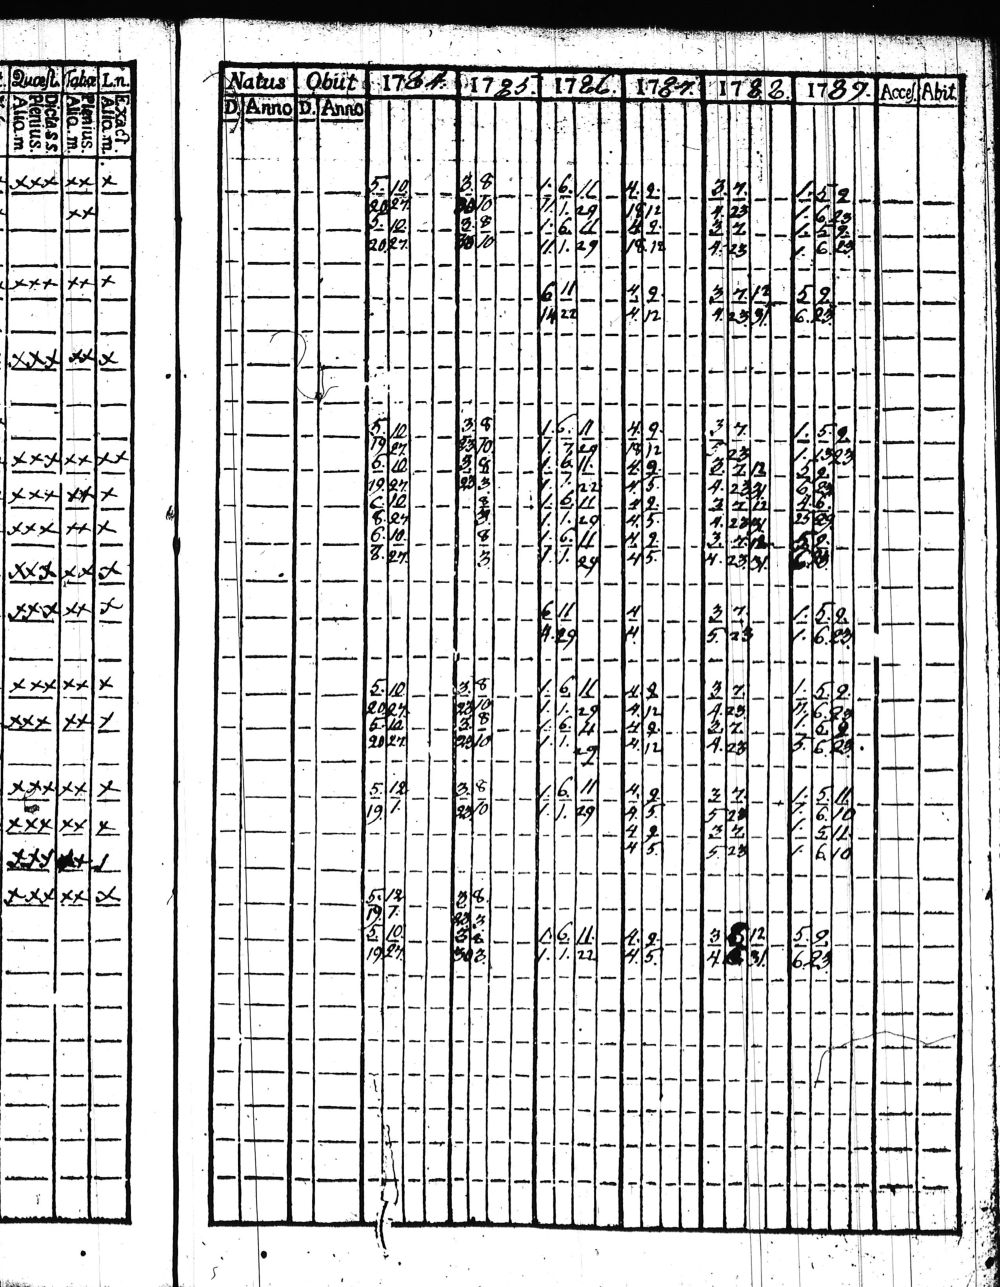 Quæst. Tabœ L.n.
Dicta s s. Plenius. Alio. m Plenius. Alio. m. Exact. Alio. m
Natus Obiit 1784. 1785. 1786. 1787. 1788. 1789. Acces. Abit
D. Anno D. Anno
xxx xx x
5. 10 3. 8 1. 6. 11 4. 9. 3. 7. 1. 5 9
xx
20 27. 30 10 1. 1. 29 18 12 4. 23 1. 6 23
5. 10. 3. 8 1. 6. 11 4. 9. 3. 7 1. 5 9.
20 27. 30 10 11. 1. 29 18. 12 4. 23 1. 6. 23
xxx xx x
6 11 4 9. 3 7. 12 5 9
14 22 4. 12 4. 23. 31. 6. 23.
xxx xx x
5. 10 3. 8 1. 6. 11 4. 9. 3 7. 1. 5 9
19 27. 23 10. 1. 7 29 18 12 5 23 1. 13 23
xxx xx xx
6. 10 3. 8 1. 6. 11. 4. 9. 3 7. 12 5 9.
19 27. 23 3 1. 1. 22 4. 5. 4. 23 31. 6 23
xxx xx x
6 10 8 1. 6 11 4 9. 3 7. 12 4 6.
8. 27 3. 1. 1. 29 4. 5. 4. 23 31 25 23
xxx xx x
6. 10. 8 1. 6. 11 4. 9 3. 7. 12 5 9.
8. 27. 3 1. 1. 29 4 5. 4. 23. 31. 6. 23
xxx xx x
xxx xx x
6 11 4 3 7. 1. 5. 9.
4. 29 4. 5. 23 1. 6. 23.
xxx xx x
5. 10. 3. 8 1. 6 11 4. 9 3 7. 1. 5. 9.
20 27. 23 10 1. 1. 29 4. 12 4. 23. 1. 6. 23
xxx xx x
5 10 3. 8 1. 6. 11 4. 9. 3. 7. 1. 6 9
20 27. 23 10 1. 1. 29 4. 12 4. 23 5. 6. 23.
xxx xx x
5. 12 3. 8 1. 6 11 4. 9 3 7. 1. 5 11
19. 1. 23 10 1. 1. 29 4. 5 5 23 1. 6 10
xxx xx x
4 9 3 7. 1. 5 11.
4 5. 5. 23 1. 6 10
xxx
xxx xx x
5. 12 3 8.
19 7. 23 3
5. 10. 3. 8 1. 6. 11. 4. 9. 3 12 5. 9
19 27. 30 3. 1. 1. 22 4. 5. 4 31. 6. 23